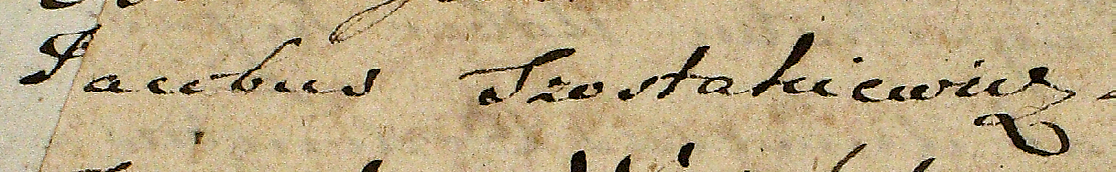 Jacobus Szostakiewicz